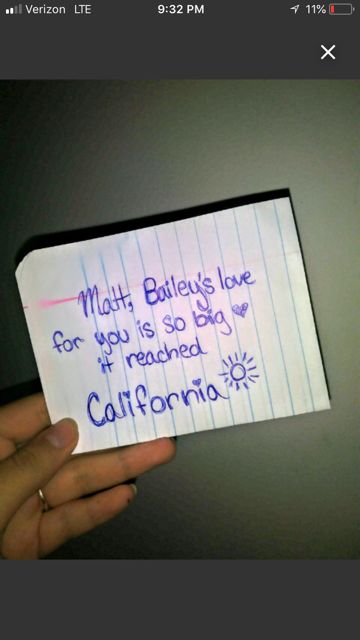 Verizon LTE 9:32 PM 11%
Matt, Bailey's love
for you is so big
it reached
California